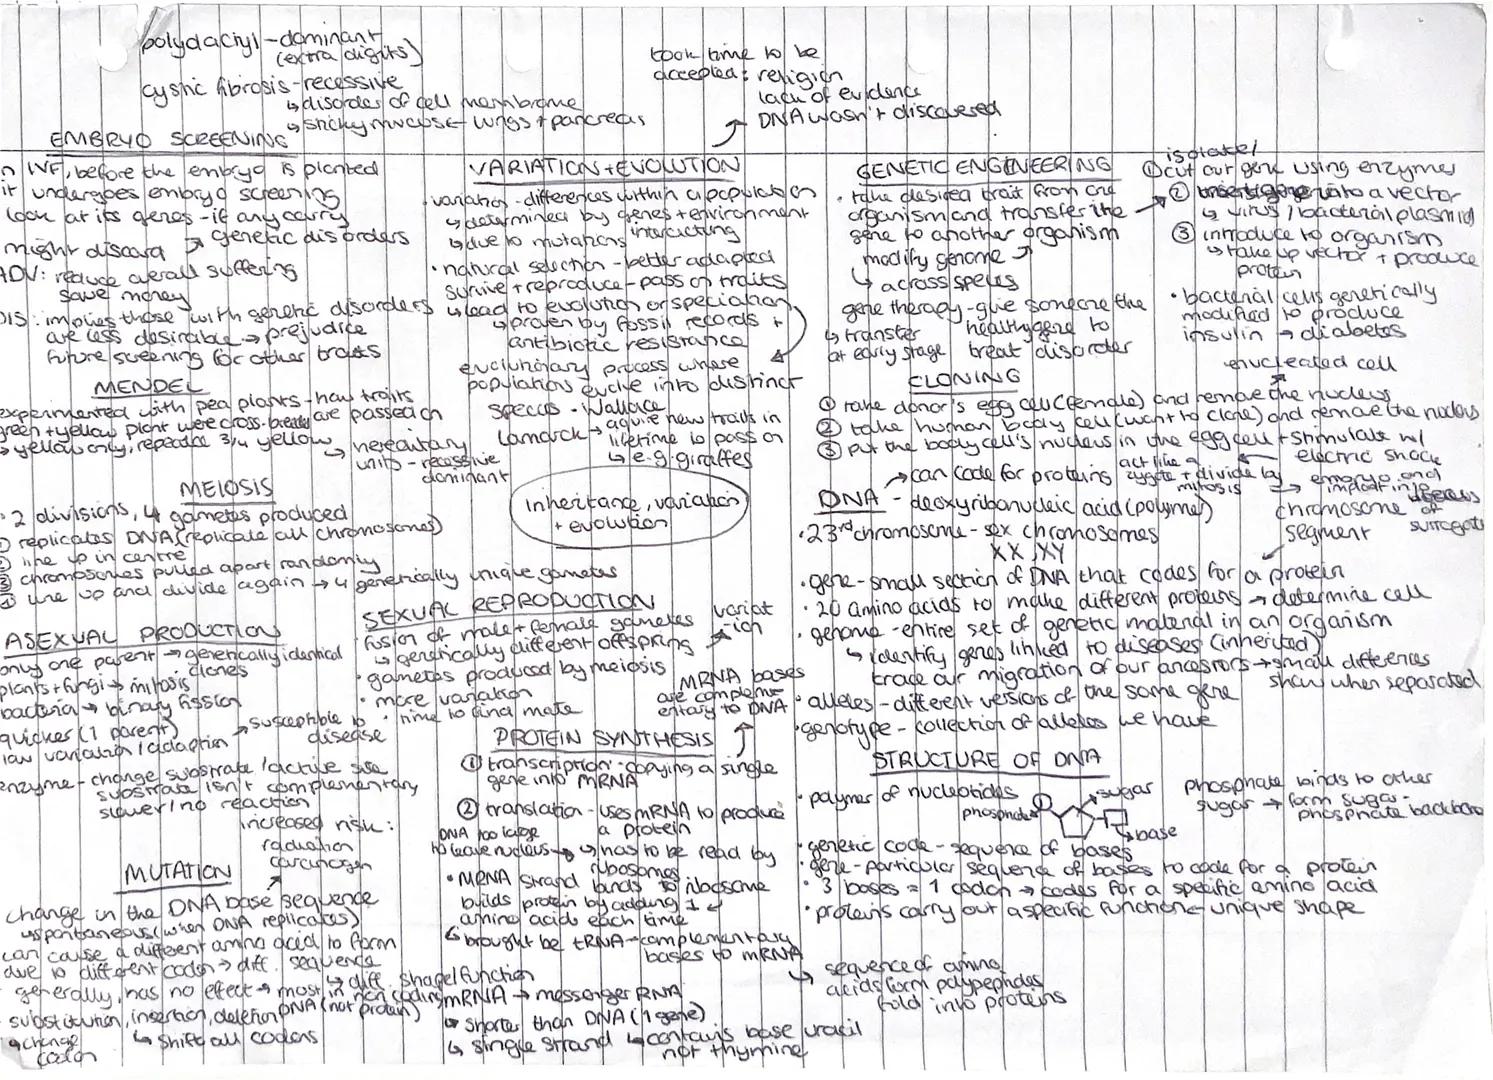 polydactyl - dominant
(extra digits)
cystic fibrosis - recessive
↳ disorder of cell membrane
↳ sticky mucose ← lungs + pancreas
took time to be
accepted: religion
lack of evidence
DNA wasn't discovered
EMBRYO SCREENING
n IVF, before the embryo is planted
it undergoes embryo screening
look at its genes - if any carry
genetic disorders
might discard
ADV: reduce overall suffering
save money
DIS: implies those with genetic disorders
are less desirable → prejudice
future screening for other traits
MENDEL
experimented with pea plants - how traits
are passed on
green + yellow plant were cross-breeded
→ yellow only, repeated 3/4 yellow
↳ hereditary
units - recessive
dominant
MEIOSIS
• 2 divisions, 4 gametes produced
① replicates DNA (replicate all chromosomes)
② line up in centre
③ chromosomes pulled apart randomly
④ line up and divide again → 4 genetically unique gametes
ASEXUAL PRODUCTION
only one parent → genetically identical
• clones
plants + fungi → mitosis
bacteria → binary fission
quicker (1 parent)
low variation / adaption → susceptible to
disease
enzyme - change substrate / active site
substrate isn't complementary
slower / no reaction
increased risk:
radiation
carcinogen
MUTATION
change in the DNA base sequence
↳ spontaneous (when DNA replicates)
can cause a different amino acid to form
due to different codon → diff. sequence
↳ diff. shape / function
generally, has no effect → most in non coding
DNA (not protein)
substitution, insertion, deletion
↳ change
codon
↳ shift all codons
VARIATION + EVOLUTION
variation - differences within a population
↳ determined by genes + environment
interacting
↳ due to mutations
• natural selection - better adapted
survive + reproduce - pass on traits
↳ lead to evolution or speciation
↳ proven by fossil records +
antibiotic resistance
evolutionary process where
populations evolve into distinct
species • Wallace
Lamarck → aquire new traits in
lifetime to pass on
↳ e.g. giraffes
inheritance, variation
+ evolution
SEXUAL REPRODUCTION
fusion of male + female gametes
↳ genetically different offspring
variat
-ion
• gametes produced by meiosis
• more variation
• time to find mate
MRNA bases
are compleme-
entary to DNA
PROTEIN SYNTHESIS
① transcription - copying a single
gene into MRNA
② translation - uses mRNA to produce
a protein
DNA too large
to leave nucleus
↳ has to be read by
ribosomes
• MRNA strand binds to ribosome
builds protein by adding 1
amino acids each time
↳ brought be tRNA - complementary
bases to mRNA
↳ sequence of amino
acids form polypeptides
fold into proteins
mRNA → messenger RNA
↳ shorter than DNA (1 gene)
↳ single strand ↳ contains base uracil
not thymine
GENETIC ENGINEERING
• take desired trait from one
organism and transfer the
gene to another organism
modify genome
↳ across species
gene therapy - give someone the
healthy gene to
treat disorder
↳ transfer
at early stage
isolate/
① cut out gene using enzymes
② insert gene into a vector
↳ virus / bacterial plasmid
③ introduce to organism
↳ take up vector + produce
protein
• bacterial cells genetically
modified to produce
insulin → diabetes
enucleated cell
CLONING
① take donor's egg cell (female) and remove the nucleus
② take human body cell (want to clone) and remove the nucleus
③ put the body cell's nucleus in the egg cell + stimulate w/
electric shock
act like a
zygote + divide by
mitosis
→ embryo and
implant into
uterus
of
surrogate
DNA → can code for proteins
- deoxyribonucleic acid (polymer)
• 23rd chromosome - sex chromosomes
XX / XY
chromosome
segment
• gene - small section of DNA that codes for a protein
• 20 amino acids to make different proteins → determine cell
• genome - entire set of genetic material in an organism
↳ identify genes linked to diseases (inherited)
trace our migration of our ancestors → small differences
show when separated
• alleles - different versions of the same gene
• genotype - collection of alleles we have
STRUCTURE OF DNA
• polymer of nucleotides
phosphate
sugar
base
phosphate binds to other
sugar → form sugar-
phosphate backbone
• genetic code - sequence of bases
• gene - particular sequence of bases to code for a protein
• 3 bases = 1 codon → codes for a specific amino acid
• proteins carry out a specific function ← unique shape